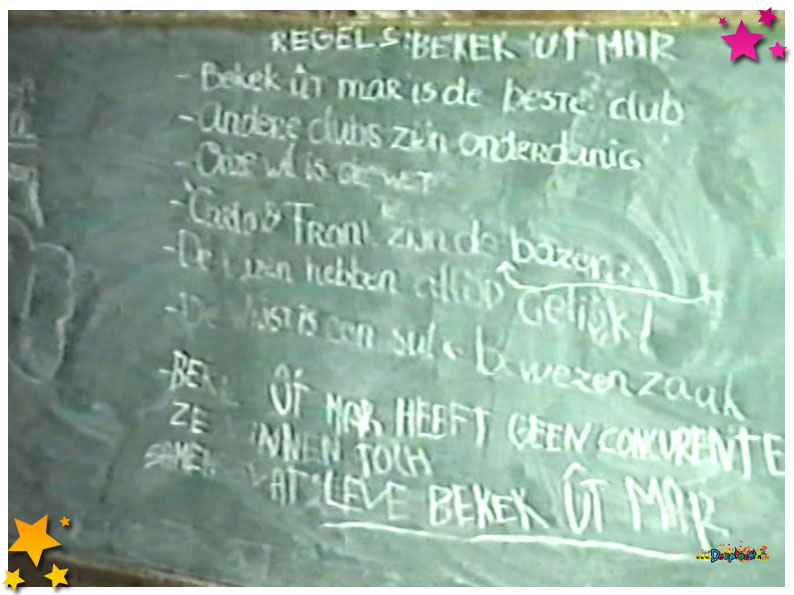 REGELS: BEKEK ÛT MAR
- Bekek ût mar is de beste club
- Andere clubs zijn onderdanig
- Onze wil is de wet
- Carlo & Frank zijn de bazen
- De hebben altijd gelijk!
- De is een bewezen zaak
- ÛT MAR HEEFT GEEN CONCURENTE
ZE WINNEN TOCH
LEVE BEKEK ÛT MAR